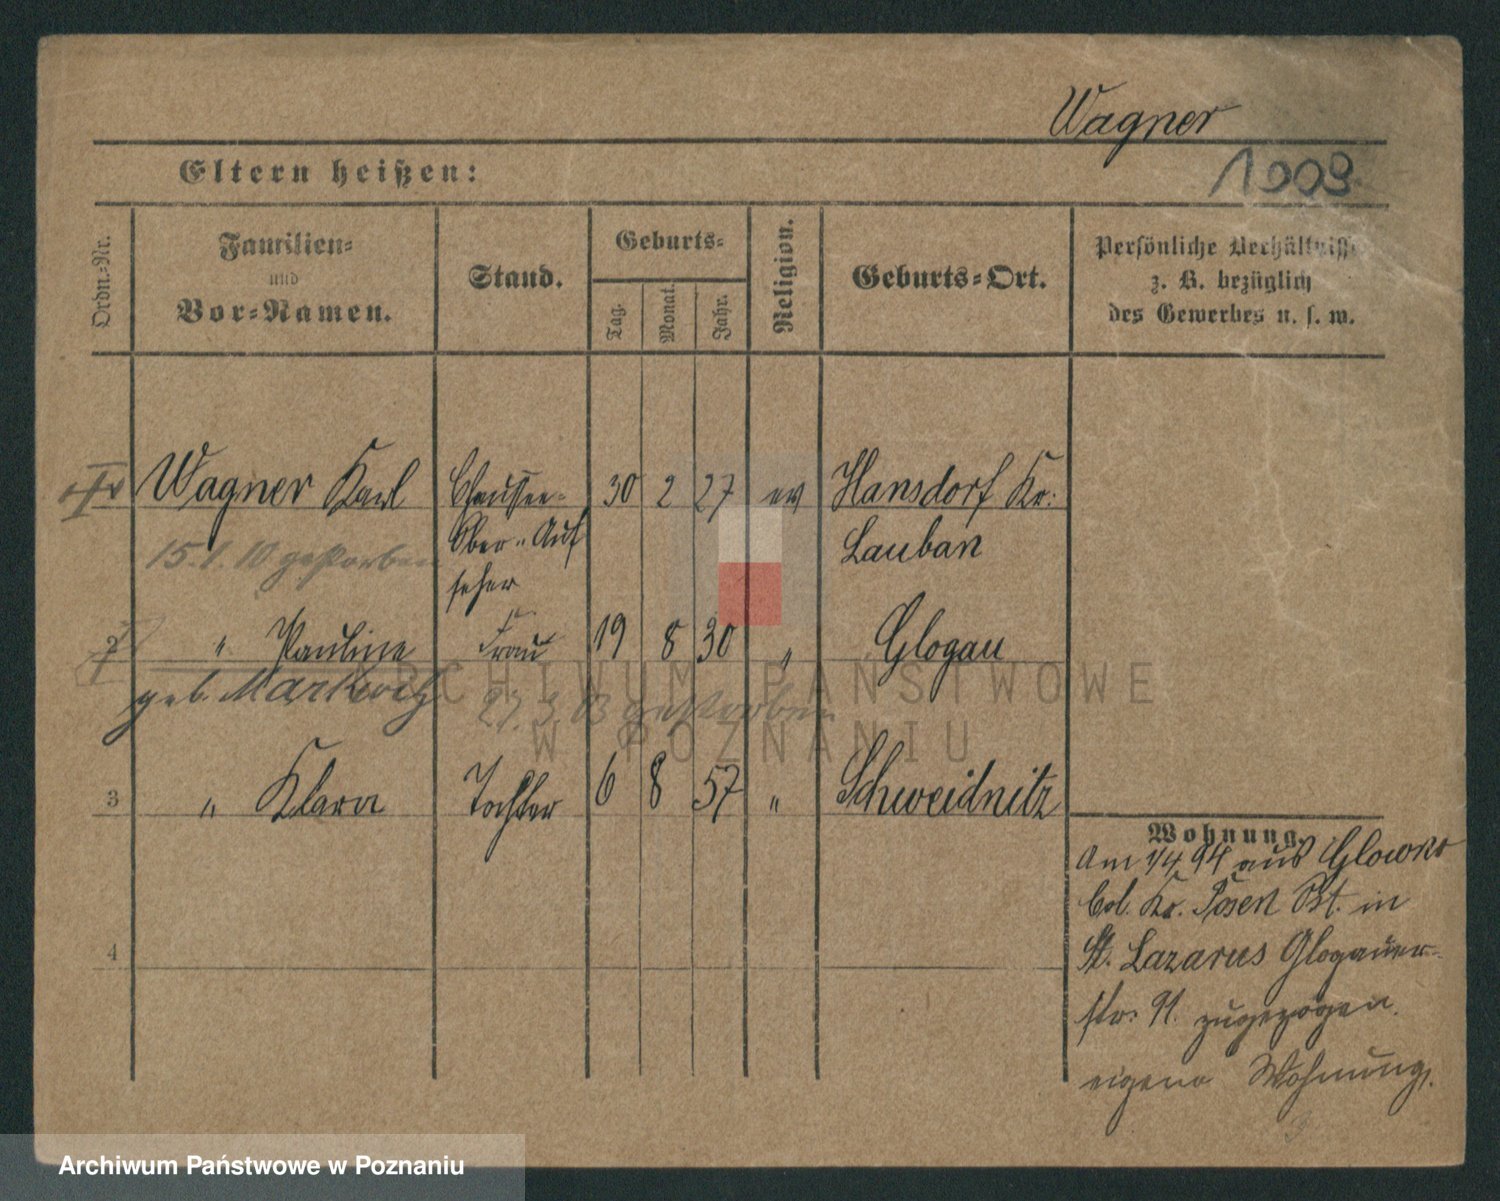 Wagner
Eltern heißen:
1009
Ordn.-Nr.
Familien-
und
Vor-Namen.
Stand.
Geburts-
Tag.
Monat.
Jahr.
Religion.
Geburts-Ort.
Persönliche Verhältnisse
z. B. bezüglich
des Gewerbes u. s. w.
Wagner Karl Chaussee- 30 2 27 ev Hansdorf Kr:
Ober-Auf Lauban
15.1.10 gestorben
seher
2 " Pauline Frau 19 8 30 " Glogau
geb.
27.3.03 gestorben
3 " Klara Tochter 6 8 57 " Schweidnitz
4
Wohnung.
Am 1/4 94 aus Glowno
Col. Kr. Posen Ost. in
St. Lazarus Glogauer-
str. 91. zugezogen.
eigene Wohnung.
ARCHIWUM PAŃSTWOWE
W POZNANIU
Archiwum Państwowe w Poznaniu